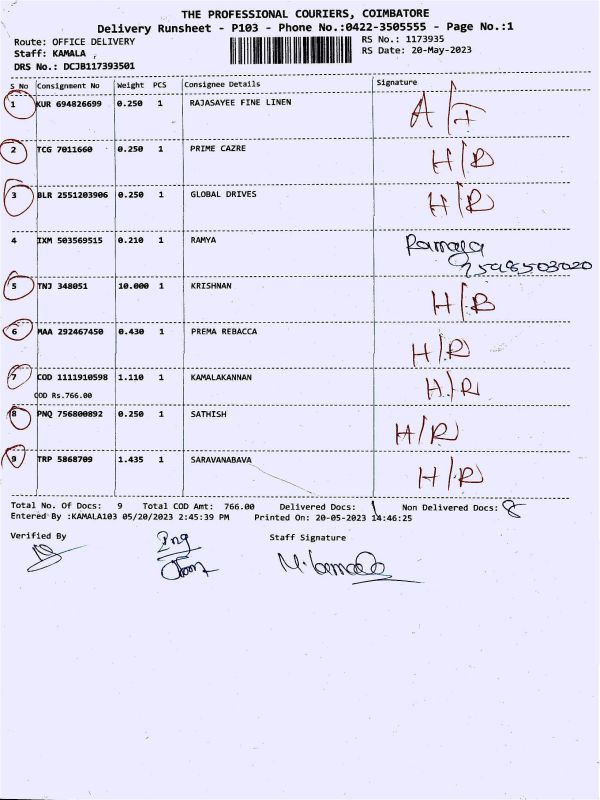 THE PROFESSIONAL COURIERS, COIMBATORE
Delivery Runsheet - P103 - Phone No.:0422-3505555 - Page No.:1
Route: OFFICE DELIVERY RS No.: 1173935
Staff: KAMALA RS Date: 20-May-2023
DRS No.: DCJB117393501
S No Consignment No Weight PCS Consignee Details Signature
1 KUR 694826699 0.250 1 RAJASAYEE FINE LINEN A/T
2 TCG 7011660 0.250 1 PRIME CAZRE H/R
3 BLR 2551203906 0.250 1 GLOBAL DRIVES H/R
4 IXM 503569515 0.210 1 RAMYA Ramaya
5 TNJ 348051 10.000 1 KRISHNAN H/R
6 MAA 292467450 0.430 1 PREMA REBACCA H/R
7 COD 1111910598 1.110 1 KAMALAKANNAN H/R
COD Rs.766.00
8 PNQ 756800892 0.250 1 SATHISH H/R
9 TRP 5868709 1.435 1 SARAVANABAVA H/R
Total No. Of Docs: 9 Total COD Amt: 766.00 Delivered Docs: 1 Non Delivered Docs: 8
Entered By :KAMALA103 05/20/2023 2:45:39 PM Printed On: 20-05-2023 14:46:25
Verified By Staff Signature
M. Kamala